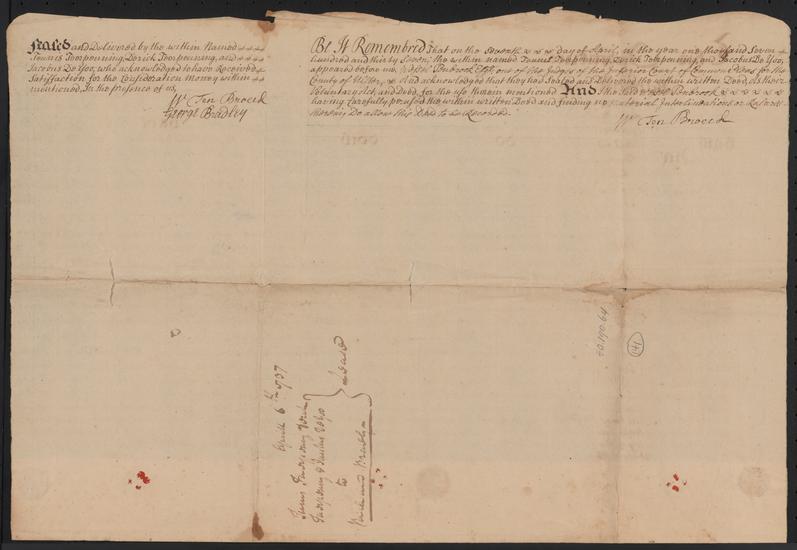 Sealed and Delivered by the within Named
Teunis Toospenning, Dirick Toospenning, and
Jacobus Do Yoo, who acknowledged to have Received
Satisfaction for the Consideration money within
mentioned. In the presence of us,
Wn Ten Broeck
George Bradley
Be It Remembred That on the day of April, in the year one thousand Seven
hundred and thirty Seven; the within named Teunis Toospenning, Dirick Toospenning, and Jacobus Do Yoo,
appeared before me Wessel Tenbroeck Esqr. one of the Judges of the Inferior Court of Common Pleas for the
County of Ulster, and acknowledged that they had Sealed and Delivered the within written Deed, as their
Voluntary Act, and Deed, for the use therein mentioned. And I the said Tenbroeck
having Carefully perused the within written Deed and finding no material Interlineations or Rasures
therein, Do allow this Deed to be Recorded.
Wn Ten Broeck
April 6th 1737
to
Deed
60.190.64
141